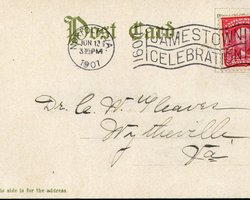 Post Card.
JUN 12
3 30 PM
1907
1607
JAMESTOW
CELEBRATI
Dr. C. W. Cleaves
Wytheville
Va.
is side is for the address.